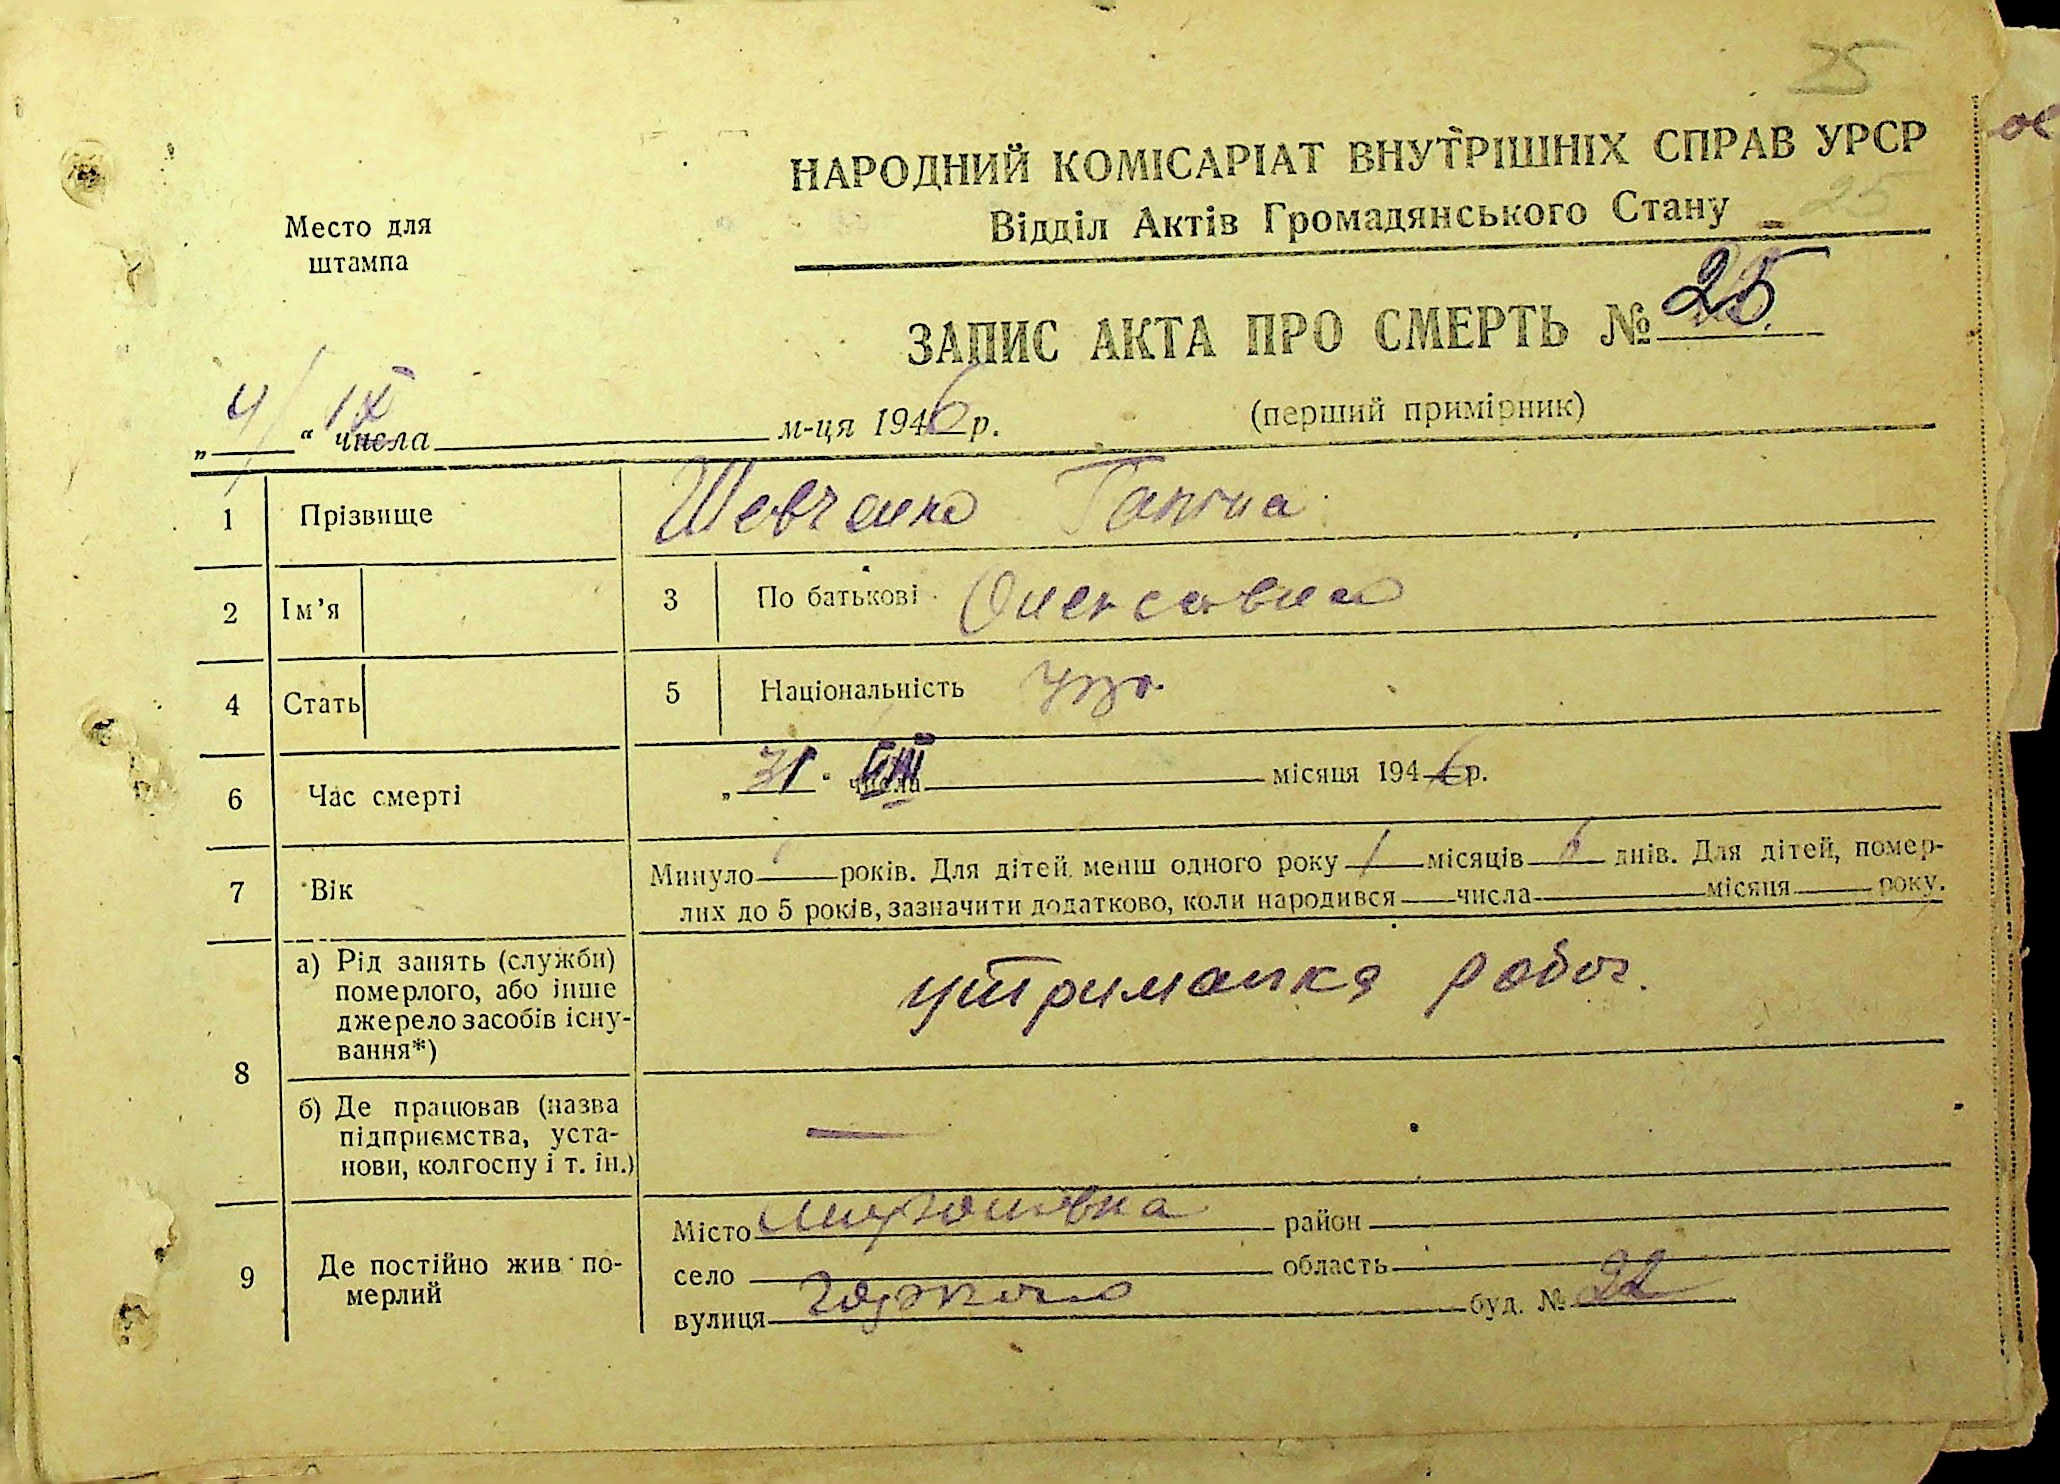 25
НАРОДНИЙ КОМІСАРІАТ ВНУТРІШНІХ СПРАВ УРСР
Відділ Актів Громадянського Стану 25
Место для
штампа
ЗАПИС АКТА ПРО СМЕРТЬ № 25
„4“ числа IX м-ця 1946 р. (перший примірник)
1 Прізвище Шевченко Ганна
2 Ім’я 3 По батькові
4 Стать 5 Національність укр.
6 Час смерті „31“ числа VIII місяця 1946 р.
7 Вік Минуло років. Для дітей менш одного року 1 місяців 6 днів. Для дітей, помер-
лих до 5 років, зазначити додатково, коли народився числа місяця року.
8 а) Рід занять (служби)
померлого, або інше
джерело засобів існу-
вання*)
утриманка робоч.
б) Де працював (назва
підприємства, уста-
нови, колгоспу і т. ін.)
—
9 Де постійно жив по-
мерлий
Місто район
село область
вулиця буд. № 22